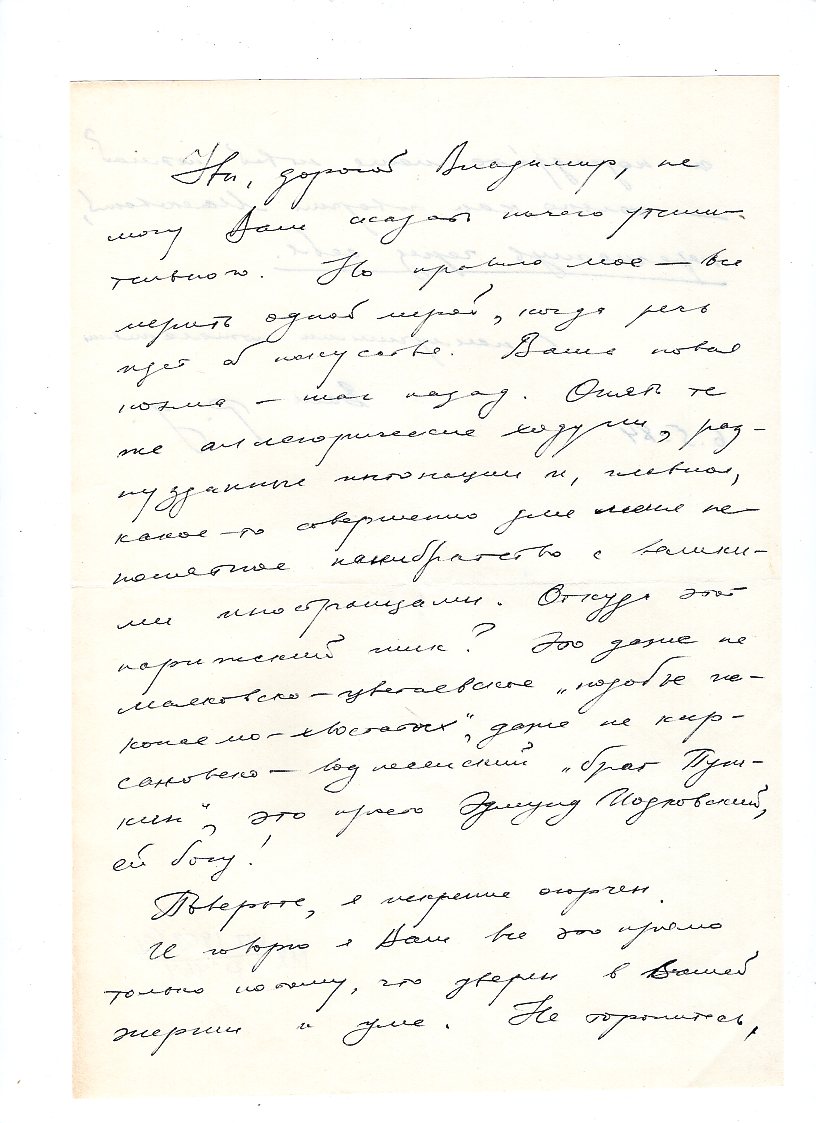 Увы, дорогой Владимир, не
могу Вам сказать ничего утеши-
тельного. Но правило мое — все
мерить одной мерой, когда речь
идет об искусстве. Ваша новая
поэма — шаг назад. Опять те
же аллегорические ходули, раз-
нузданные интонации и, главное,
какое-то совершенно уже мне не-
понятное панибратство с велики-
ми иностранцами. Откуда этот
парижский шик? Это даже не
маяковско-цветаевское „подобье ис-
копаемо-хвостатых", даже не кир-
сановско-вознесенский „брат Пуш-
кин", это просто Эдмунд Иодковский,
ей богу!
Поверьте, я искренне огорчен.
И говорю я Вам все это прямо
только потому, что уверен в Вашей
энергии и уме. Не торопитесь,